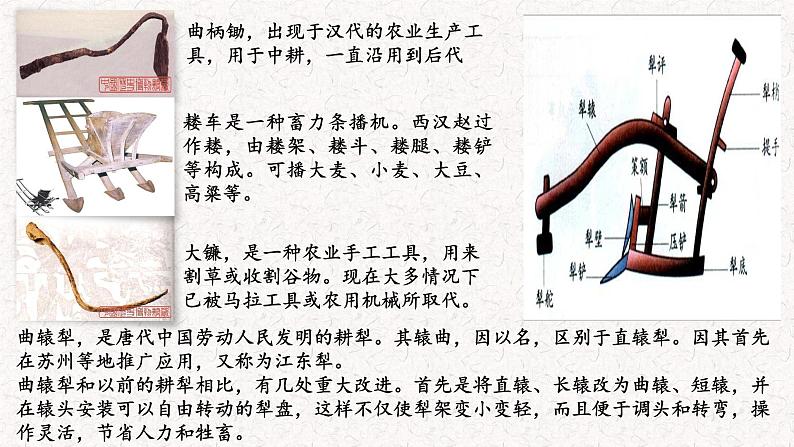 曲柄锄，出现于汉代的农业生产工
具，用于中耕，一直沿用到后代
耧车是一种畜力条播机。西汉赵过
作耧，由耧架、耧斗、耧腿、耧铲
等构成。可播大麦、小麦、大豆、
高粱等。
大镰，是一种农业手工工具，用来
割草或收割谷物。现在大多情况下
已被马拉工具或农用机械所取代。
犁评
犁梢
犁辕
提手
策额
犁箭
犁壁
压铲
犁铲
犁底
犁舵
曲辕犁，是唐代中国劳动人民发明的耕犁。其辕曲，因以名，区别于直辕犁。因其首先
在苏州等地推广应用，又称为江东犁。
曲辕犁和以前的耕犁相比，有几处重大改进。首先是将直辕、长辕改为曲辕、短辕，并
在辕头安装可以自由转动的犁盘，这样不仅使犁架变小变轻，而且便于调头和转弯，操
作灵活，节省人力和牲畜。